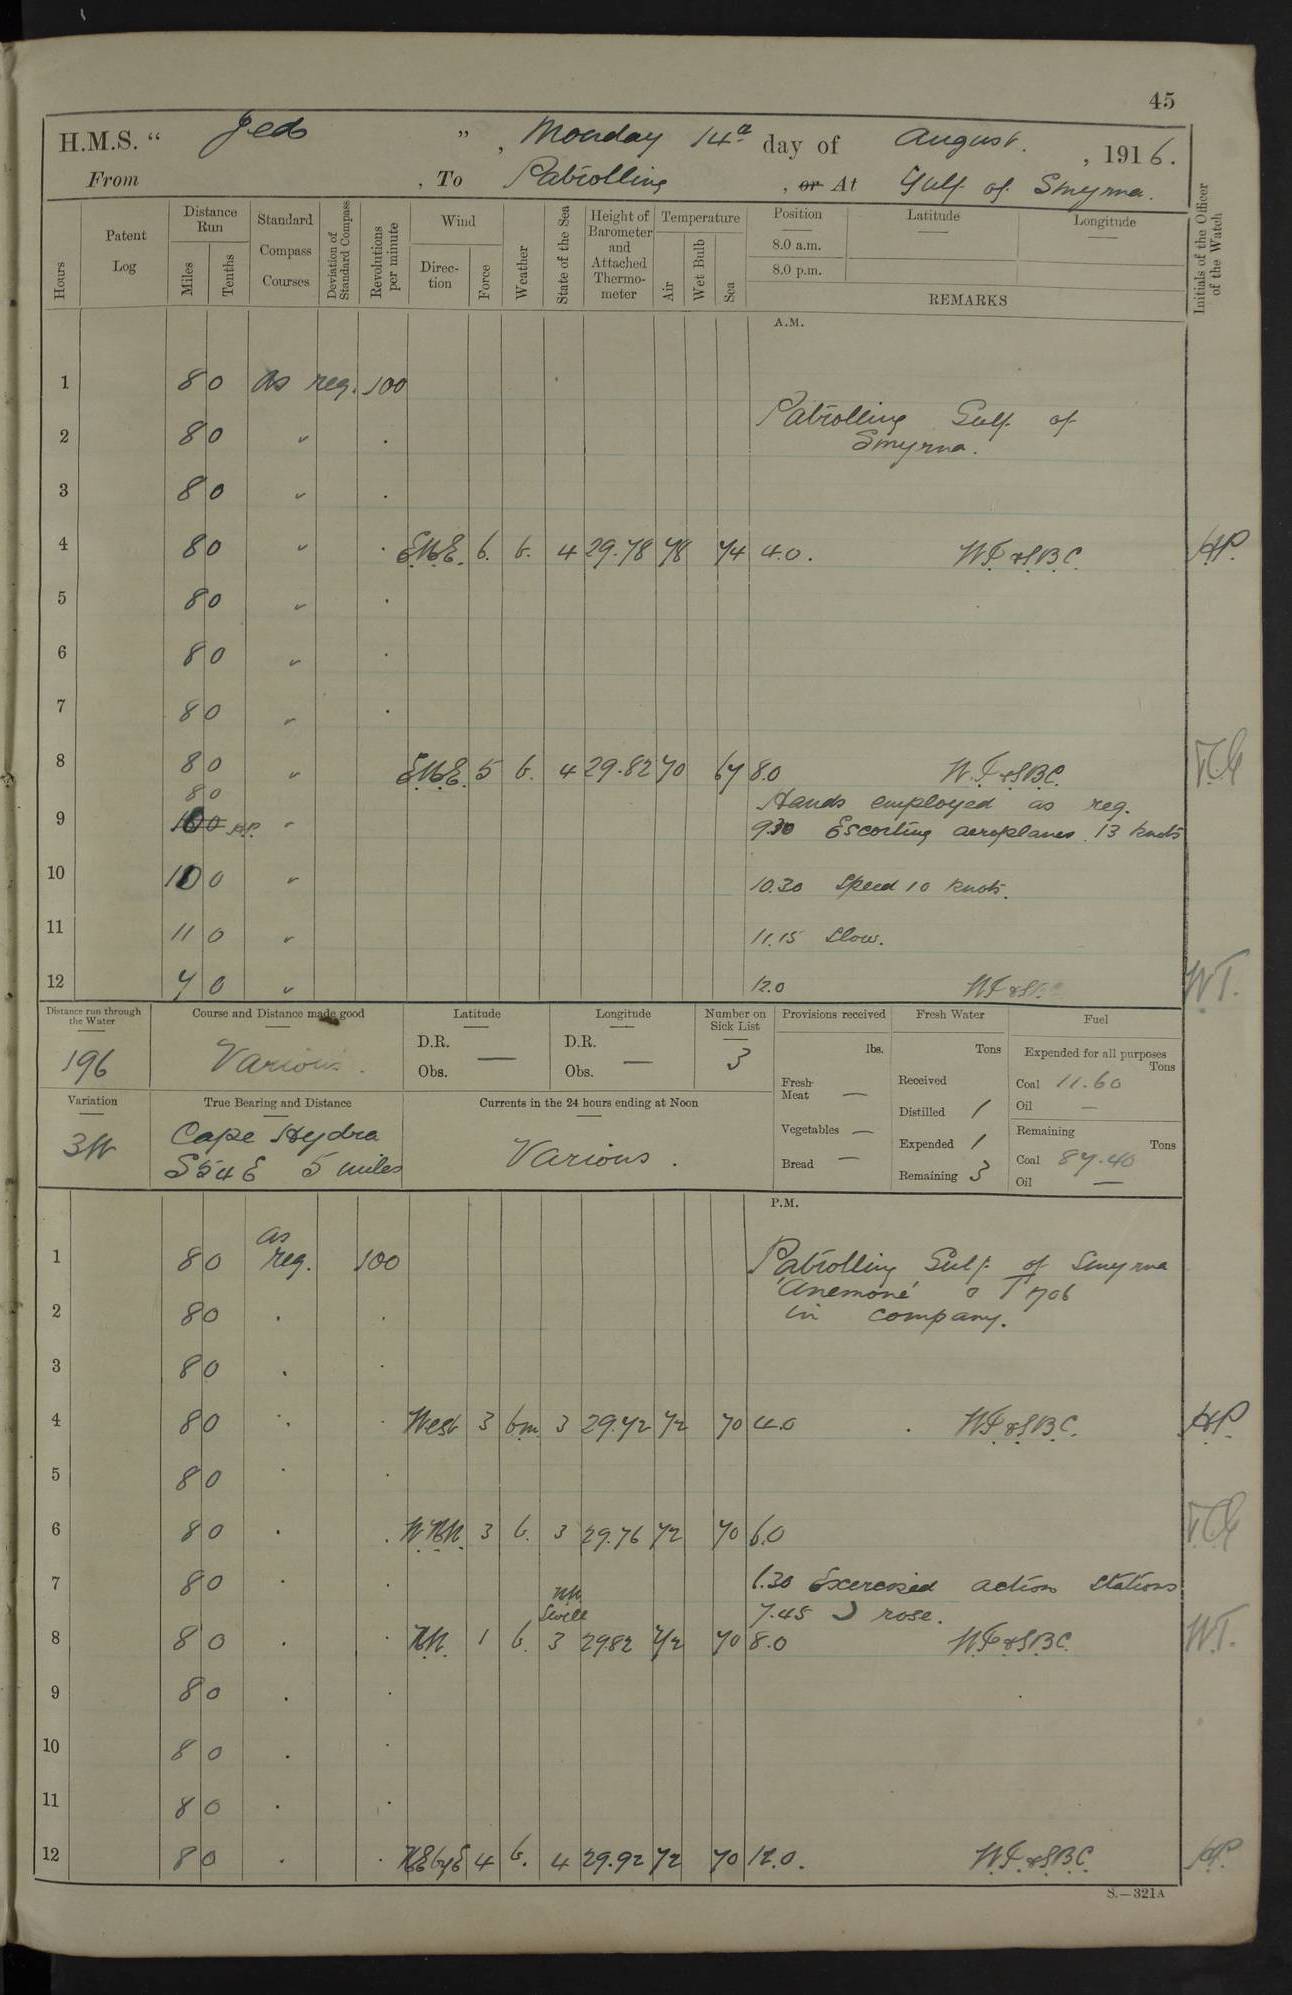 45
H.M.S. " Jed ", Monday 14th day of August, 1916.
From , To Patrolling , or At Gulf of Smyrna.
Hours
Patent Log
Distance Run
Miles
Tenths
Standard Compass Courses
Deviation of Standard Compass
Revolutions per minute
Wind
Direction
Force
Weather
State of the Sea
Height of Barometer and Attached Thermometer
Temperature
Air
Wet Bulb
Sea
Position
8.0 a.m.
8.0 p.m.
Latitude
Longitude
REMARKS
Initials of the Officer of the Watch
A.M.
1 8 0 As req. 100
Patrolling Gulf of
2 8 0 " .
Smyrna.
3 8 0 " .
4 8 0 " . ENE. 6. b. 4 29.78 78 74 4.0. WT & SBC. HP.
5 8 0 " .
6 8 0 " .
7 8 0 " .
8 8 0 " ENE. 5 b. 4 29.82 70 67 8.0 WT & SBC.
8 0 Hands employed as req.
9 10 0 HP. " 9.30 Escorting aeroplanes. 13 knots
10 10 0 " 10.30 Speed 10 knots.
11 11 0 " 11.15 Slow.
12 7 0 " 12.0 WT & SBC WT.
Distance run through the Water
196
Course and Distance made good
Various.
Latitude
D.R. —
Obs.
Longitude
D.R. —
Obs.
Number on Sick List
3
Provisions received
lbs.
Fresh Meat —
Vegetables —
Bread —
Fresh Water
Tons
Received
Distilled 1
Expended 1
Remaining 3
Fuel
Expended for all purposes
Tons
Coal 11.60
Oil —
Remaining
Tons
Coal 87.40
Oil —
Variation
3W
True Bearing and Distance
Cape Hydra
S54E 5 miles
Currents in the 24 hours ending at Noon
Various.
P.M.
As
1 8 0 req. 100 Patrolling Gulf of Smyrna
'Anemone' & T 706
2 8 0 . . in company.
3 8 0 . .
4 8 0 . . West 3 bm. 3 29.72 72 70 4.0 WT & SBC. HP.
5 8 0 . .
6 8 0 . . WNW. 3 b. 3 29.76 72 70 6.0
7 8 0 . . 6.30 Exercised action stations
NW Swell 7.45 ☽ rose.
8 8 0 . . NW. 1 b. 3 29.82 72 70 8.0 WT & SBC. WT.
9 8 0 . .
10 8 0 . .
11 8 0 . .
12 8 0 . . NEbyE 4 b. 4 29.92 72 70 12.0. WT & SBC HP.
S.—321A